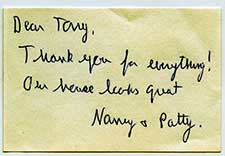 Dear Tony,
Thank you for everything!
Our house looks great
Nancy & Patty.